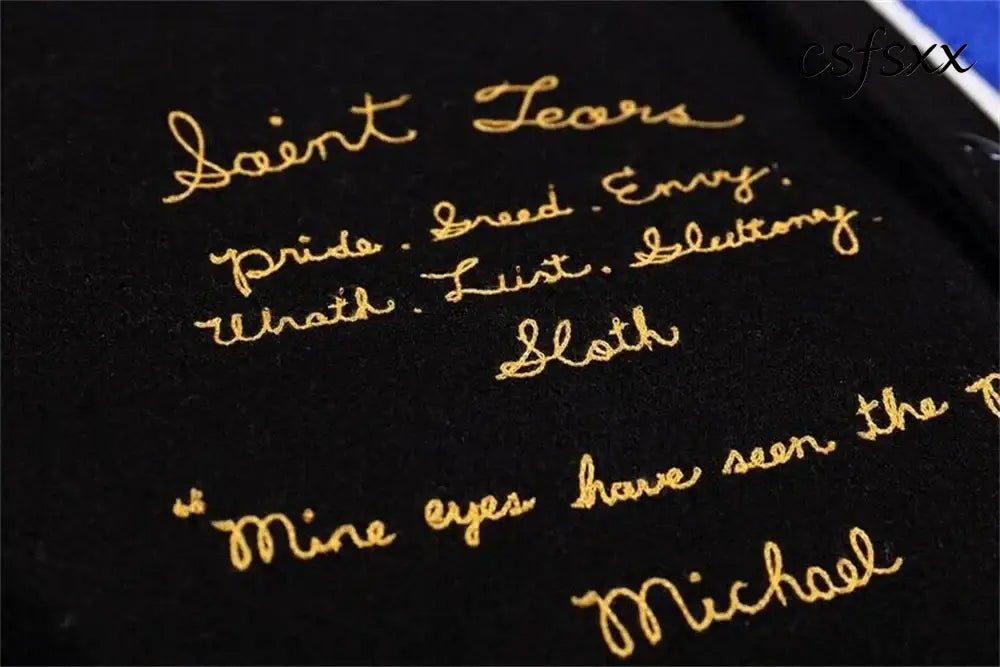 csfsxx
Saint Tears
Pride . Greed . Envy .
Wrath . Lust . Gluttony .
Sloth
"Mine eyes have seen the
Michael